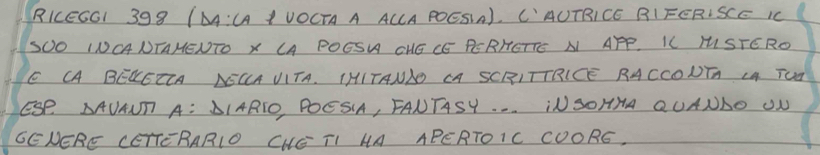 RILEGGI 398 (DA: LA 1 VOLTA A ALLA POESIA). L'AUTRICE RIFERISCE IL
SUO INCANTAMENTO X LA POESIA CHE LE PERMETTE DI APP. IL MISTERO
E LA BELLEZZA DELLA VITA. IMITANDO LA SCRITTRICE RACCONTA LA TUA
ESP. DAVANTI A: DIARIO, POESIA, FANTASY... INSOMMA QUANDO UN
GENERE LETTERARIO CHE TI HA APERTO IL CUORE.